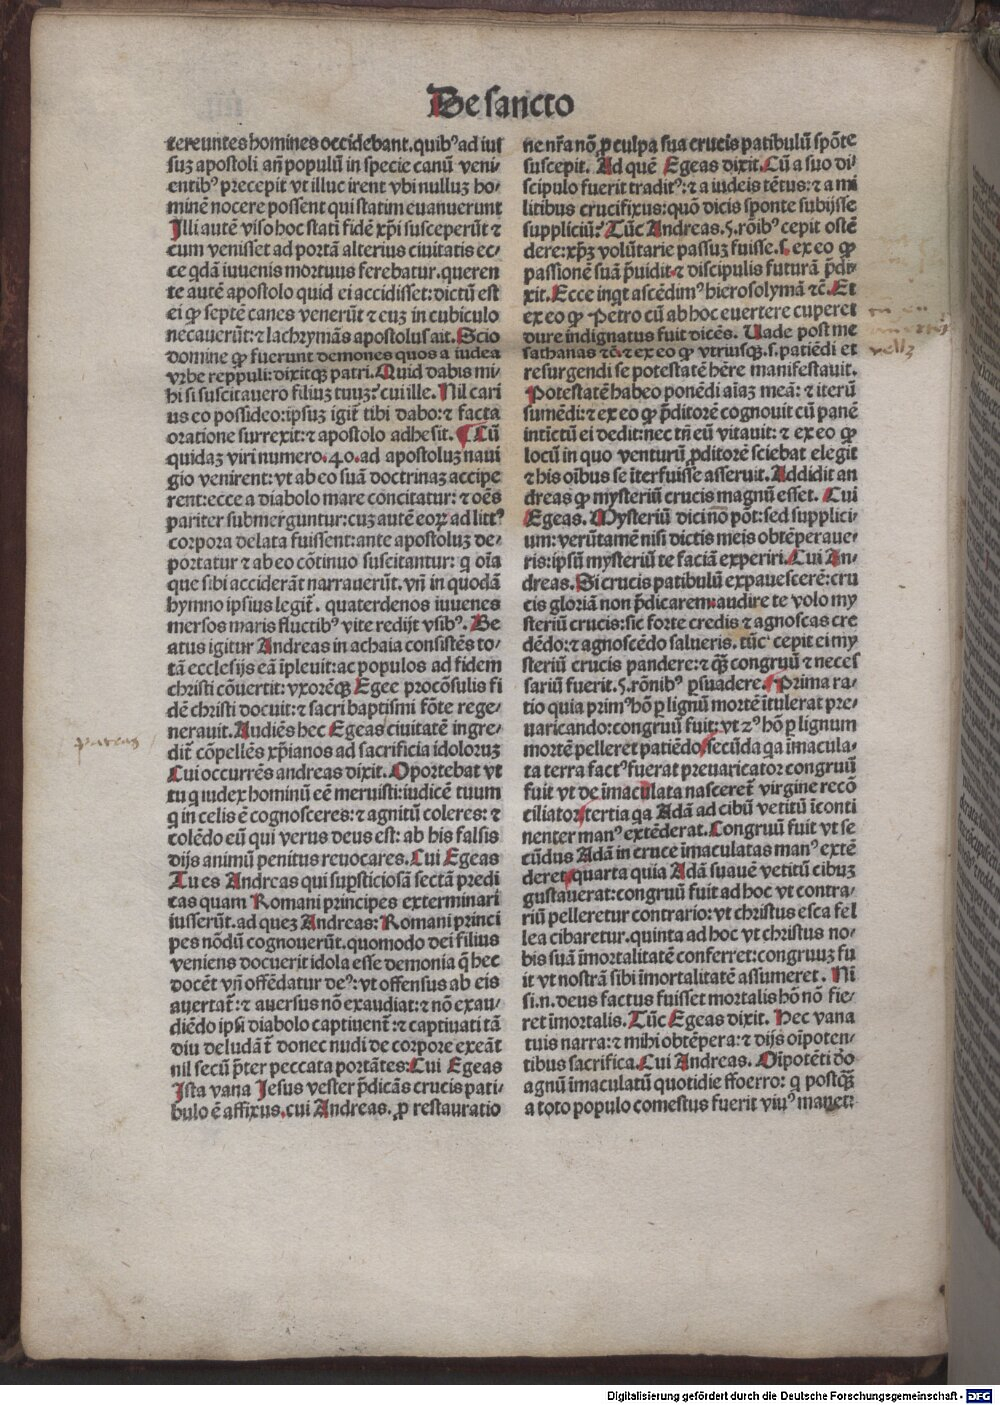 De sancto
tereuntes homines occidebant. quibꝰ ad ius
suz apostoli añ populū in specie canū veni⸗
entibꝰ precepit vt illuc irent vbi nulluz ho⸗
minē nocere possent qui statim euanuerunt
Illi autē viso hoc stati fidē xp̄i susceperūt ⁊
cum venisset ad portā alterius ciuitatis ec⸗
ce qdā iuuenis mortuus ferebatur. queren
te autē apostolo quid ei accidisset: dictū est
ei ꝙ septē canes venerūt ⁊ euz in cubiculo
necauerūt: ⁊ lachrymās apostolus ait. Scio
domine ꝙ fuerunt demones quos a iudea
vrbe reppuli: dixitqꝫ patri. Quid dabis mi⸗
hi si suscitauero filiuz tuuz? cui ille. Nil cari
us eo possideo: ipsuz igit̄ tibi dabo: ⁊ facta
oratione surrexit: ⁊ apostolo adhesit. ¶ Cū
quidaz viri numero .40. ad apostoluz naui
gio venirent: vt ab eo suā doctrinaz accipe
rent: ecce a diabolo mare concitatur: ⁊ oēs
pariter submerguntur: cuz autē eoꝝ ad littꝰ
corpora delata fuissent: ante apostoluz de⸗
portatur ⁊ ab eo cōtinuo suscitantur: q oīa
que sibi acciderāt narrauerūt. vñ in quodā
hymno ipsius legit̄. quaterdenos iuuenes
mersos maris fluctibꝰ vite redijt vsibꝰ. Be
atus igitur Andreas in achaia consistēs to⸗
tā ecclesijs eā īpleuit: ac populos ad fidem
christi cōuertit: vxorēqꝫ Egee procōsulis fi
dē christi docuit: ⁊ sacri baptismi fōte rege⸗
nerauit. Audiēs hec Egeas ciuitatē ingre⸗
dit̄ cōpellēs xp̄ianos ad sacrificia idoloruz
Cui occurrēs andreas dixit. Oportebat vt
tu q iudex hominū eē meruisti: iudicē tuum
q in celis ē cognosceres: ⁊ agnitū coleres: ⁊
colēdo eū qui verus deus est: ab his falsis
dijs animū penitus reuocares. Cui Egeas
Tu es Andreas qui suꝑsticiosā sectā predi
cas quam Romani principes exterminari
iusserūt. ad quez Andreas: Romani princi
pes nōdū cognouerūt. quomodo dei filius
veniens docuerit idola esse demonia q̄ hec
docēt vñ offēdatur deꝰ: vt offensus ab eis
auertat̄: ⁊ auersus nō exaudiat: ⁊ nō exau⸗
diēdo ipsi diabolo captiuent̄: ⁊ captiuati tā
diu deludāt̄ donec nudi de corpore exeāt
nil secū p̄ter peccata portātes: Cui Egeas
Ista vana Jesus vester p̄dicās crucis pati⸗
bulo ē affixus. cui Andreas. ꝓ restauratio
ne nr̄a nō ꝓ culpa sua crucis patibulū spōte
suscepit. Ad quē Egeas dixit. Cū a suo di⸗
scipulo fuerit traditꝰ: ⁊ a iudeis tētus: ⁊ a mi
litibus crucifixus: quō dicis sponte subijsse
suppliciū? Tūc Andreas .5. rōibꝰ cepit ostē
dere: xp̄z volūtarie passuz fuisse. s. ex eo ꝙ
passionē suā p̄uidit ⁊ discipulis futurā p̄di⸗
xit. Ecce inqt ascēdimꝰ hierosolymā ⁊c̄. Et
ex eo ꝙ Petro cū ab hoc euertere cuperet
dure indignatus fuit dicēs. Uade post me
sathanas ⁊c̄. ⁊ ex eo ꝙ vtriusqꝫ .s. patiēdi et
resurgendi se potestatē hēre manifestauit.
Potestatē habeo ponēdi aīaz meā: ⁊ iterū
sumēdi: ⁊ ex eo ꝙ p̄ditorē cognouit cū panē
intīctū ei dedit: nec tñ eū vitauit: ⁊ ex eo ꝙ
locū in quo venturū ꝓditorē sciebat elegit
⁊ his oībus se īterfuisse asseruit. Addidit an
dreas ꝙ mysteriū crucis magnū esset. Cui
Egeas. Mysteriū dici nō pōt: sed supplici⸗
um: verūtamē nisi dictis meis obtēperaue⸗
ris: ipsū mysteriū te faciā experiri. Cui An⸗
dreas. Si crucis patibulū expauescerē: cru
cis gloriā non p̄dicarem: audire te volo my
steriū crucis: sic forte credis ⁊ agnoscas cre
dēdo: ⁊ agnoscēdo salueris. tūc cepit ei my
steriū crucis pandere: ⁊ q̄ꝫ congruū ⁊ neces
sariū fuerit .5. rōnibꝰ ꝑsuadere. ¶ Prima ra⸗
tio quia primꝰ hō ꝑ lignū mortē ītulerat pre⸗
uaricando: congruū fuit: vt 2ꝰ hō ꝑ lignum
mortē pelleret patiēdo secūda qa īmacula⸗
ta terra factꝰ fuerat preuaricator congruū
fuit vt de īmaculata nasceret̄ virgine recō
ciliator tertia qa Adā ad cibū vetitū īconti
nenter manꝰ extēderat. Congruū fuit vt se
cūdus Adā in cruce īmaculatas manꝰ extē
deret quarta quia Adā suauē vetitū cibuz
gustauerat: congruū fuit ad hoc vt contra⸗
riū pelleretur contrario: vt christus esca fel
lea cibaretur. quinta ad hoc vt christus no⸗
bis suā īmortalitatē conferret: congruuz fu
it vt nostrā sibi īmortalitatē assumeret. Ni
si .n. deus factus fuisset mortalis hō nō fie⸗
ret īmortalis. Tūc Egeas dixit. Hec vana
tuis narra: ⁊ mihi obtēpera: ⁊ dijs oīpoten⸗
tibus sacrifica. Cui Andreas. Oīpotēti dō
agnū īmaculatū quotidie ffoerro: q postq̄ꝫ
a toto populo comestus fuerit viuꝰ manet:
Digitalisierung gefördert durch die Deutsche Forschungsgemeinschaft - DFG